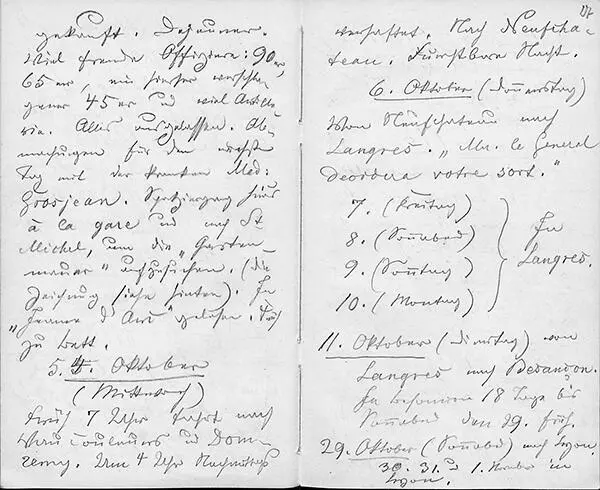 gekauft. Dejeuner.
Viel fremde Offiziere: 90er
65er, ein hierher verschla-
gener 45er und viel Artille-
rie. Alles ausgelassen. Ab-
machungen für den nächsten
Tag mit der kranken Mad:
Grosjean. Spaziergang
à la gare und nach St
Michel, um die „Garten-
mauer" aufzusuchen. (die
Zeichnung siehe hinten). In
„Jeanne d'Arc" gelesen. Früh
zu Bett.
5. Oktober
(Mittwoch)
Früh 7 Uhr Fahrt nach
Vaucouleurs und Dom-
remy. Um 4 Uhr Nachmittags
verhaftet. Nach Neufcha-
teau. Furchtbare Nacht.
6. Oktober (Donnerstag)
Von Neufchateau nach
Langres. „Mr. le General
decidera votre sort."
7. (Freitag)
8. (Sonnabend)
9. (Sonntag)
10. (Montag)
In
Langres.
11. Oktober (Dienstag) von
Langres nach Besançon.
In Besançon 18 Tage bis
Sonnabend den 29. früh.
29. Oktober (Sonnabend) nach Lyon.
30. 31. u 1. Novbr in
Lyon.